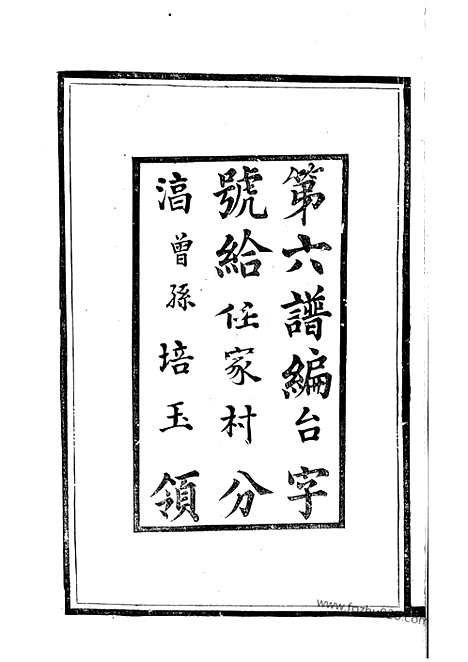 第六譜編台字
號給任家村分
滈曾孫培玉領
www.fnzhu920.com